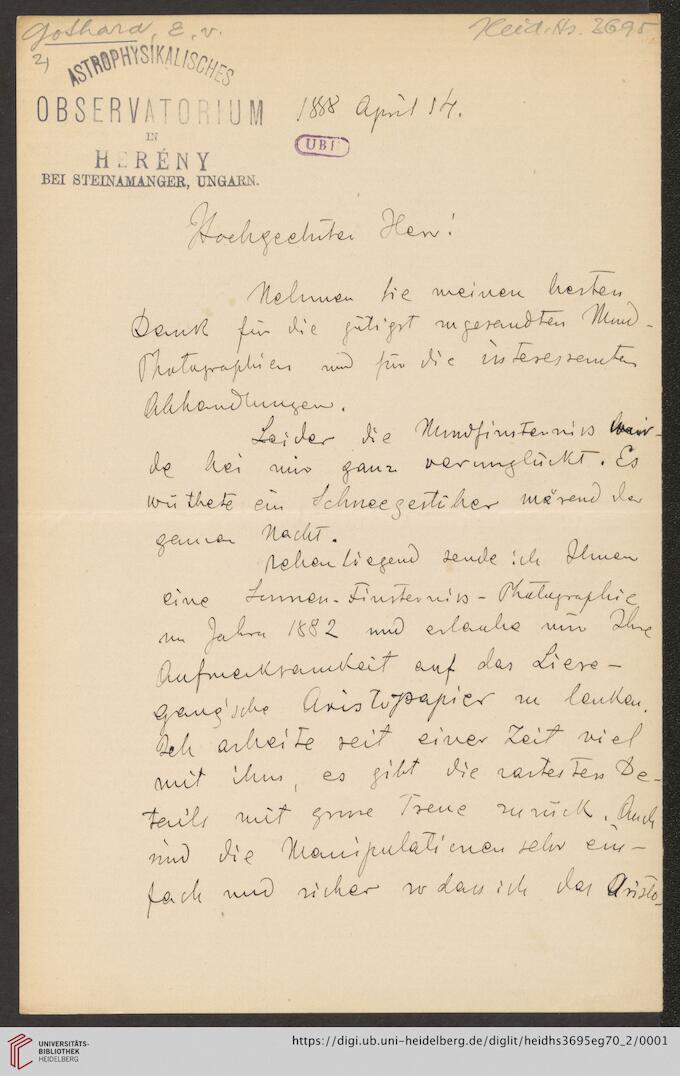 Gothard, E. v.
Heid. Hs. 3695
2)
ASTROPHYSIKALISCHES
OBSERVATORIUM
IN
HERÉNY
BEI STEINAMANGER, UNGARN.
1888 April 14.
UBH
Hochgeehrter Herr!
Nehmen Sie meinen besten
Dank für die gütigst zugesandten Mond-
Photographien und für die interessanten
Abhandlungen.
Leider die Mondfinsterniss wur-
de bei mir ganz verunglückt. Es
wüthete ein Schneegestüber wärend der
ganzen Nacht.
Nebenliegend sende ich Ihnen
eine Sonnen-Finsterniss-Photographie
im Jahre 1882 und erlaube mir Ihre
Aufmerksamkeit auf das Liese-
gang'sche Aristopapier zu lenken.
Ich arbeite seit einer Zeit viel
mit ihm, es gibt die zartesten De-
tails mit grosse Treue zurück. Auch
sind die Manipulationen sehr ein-
fach und sicher so dass ich das Aristo-
UNIVERSITÄTS-
BIBLIOTHEK
HEIDELBERG
https://digi.ub.uni-heidelberg.de/diglit/heidhs3695eg70_2/0001